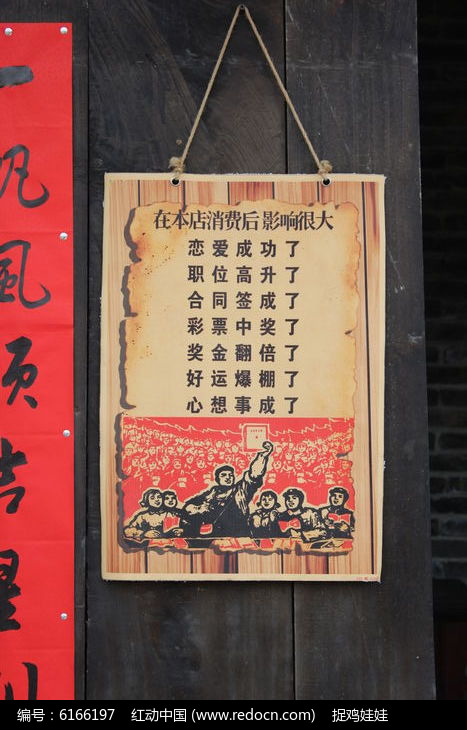 一帆風順吉星
在本店消费后影响很大
恋爱成功了
职位高升了
合同签成了
彩票中奖了
奖金翻倍了
好运爆棚了
心想事成了
编号：6166197 红动中国 (www.redocn.com) 捉鸡娃娃